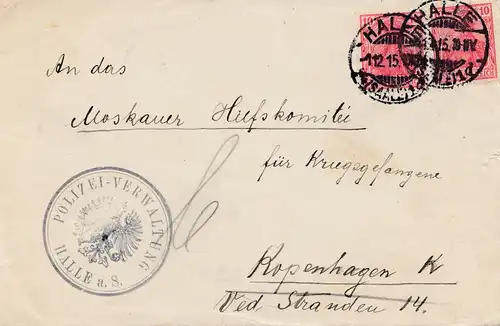 HALLE
10
HALLE
10
1.12.15.
15.
(SAALE)
An das
Moskauer Hilfskomitee
für Kriegsgefangene
POLIZEI-VERWALTUNG
HALLE a. S.
Kopenhagen K
Ved Stranden 14.